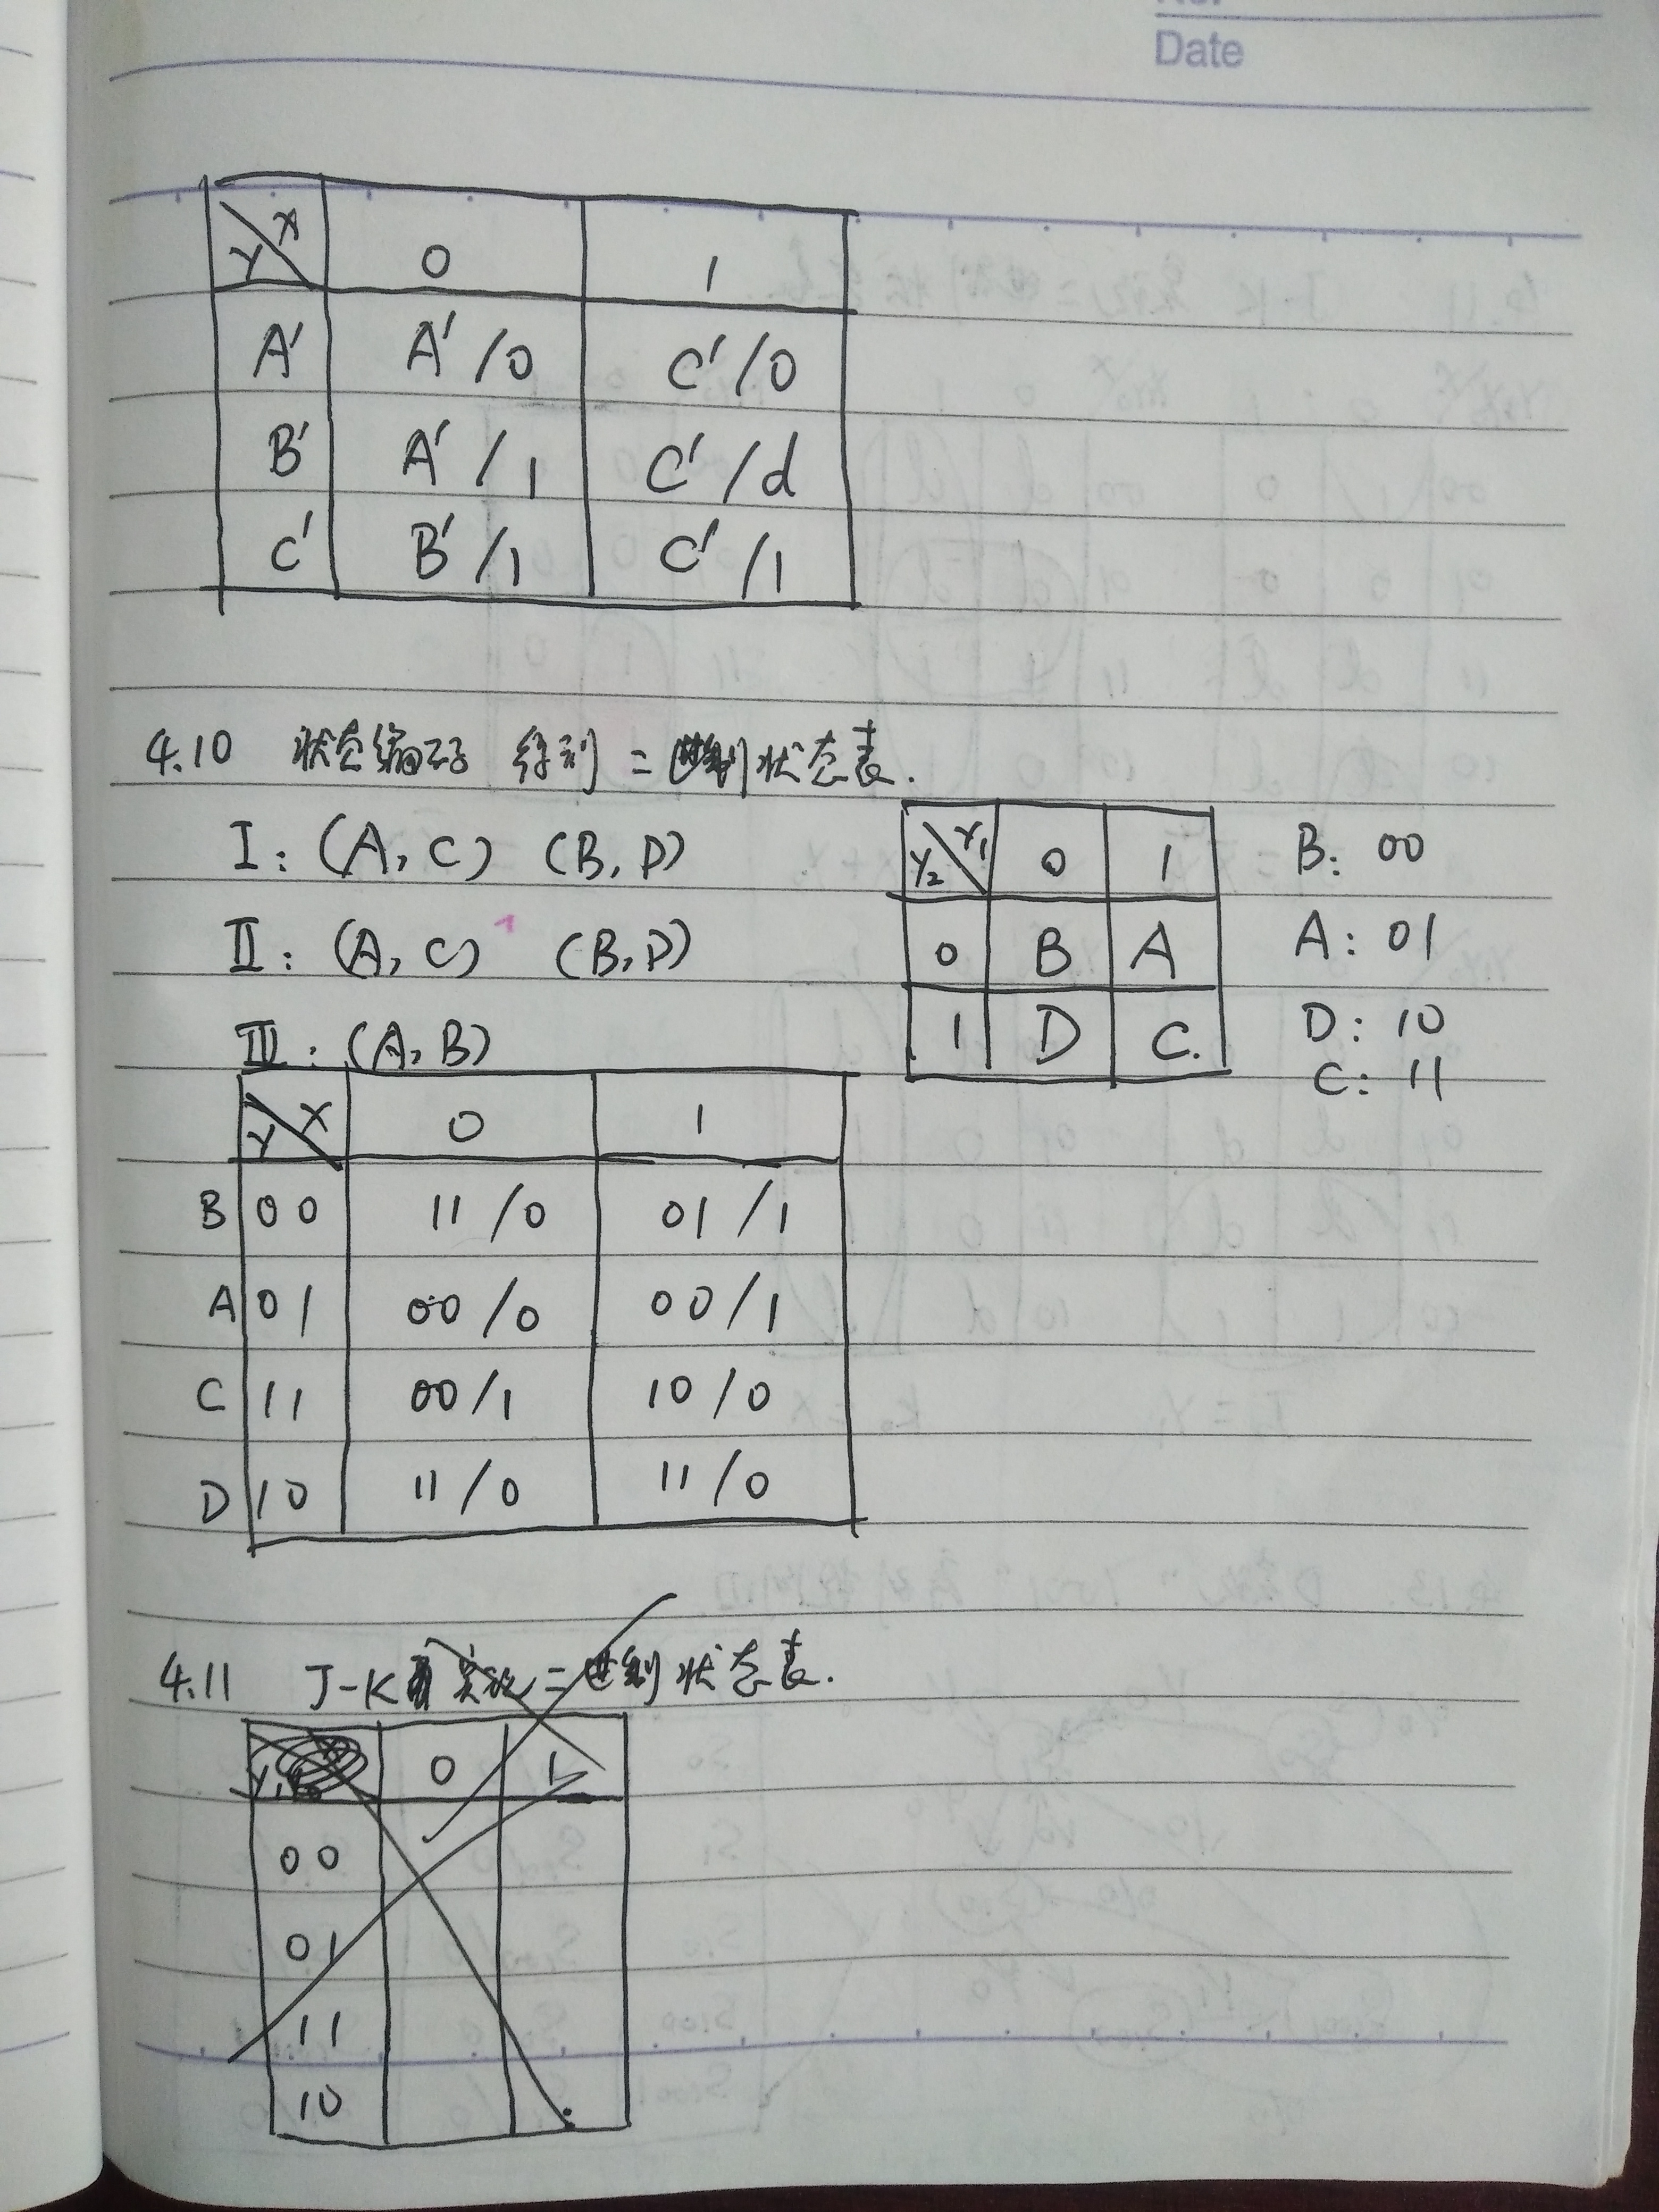 Date
Y X 0 1
A' A'/0 C'/0
B' A'/1 C'/d
C' B'/1 C'/1
4.10 状态编码 得到二进制状态表.
I: (A, C) (B, D)
II: (A, C) (B, D)
III: (A, B)
Y2 Y1 0 1
0 B A
1 D C.
B: 00
A: 01
D: 10
C: 11
Y X 0 1
B 00 11/0 01/1
A 01 00/0 00/1
C 11 00/1 10/0
D 10 11/0 11/0
4.11 J-K 实现二进制状态表.
0 1
00
01
11
10